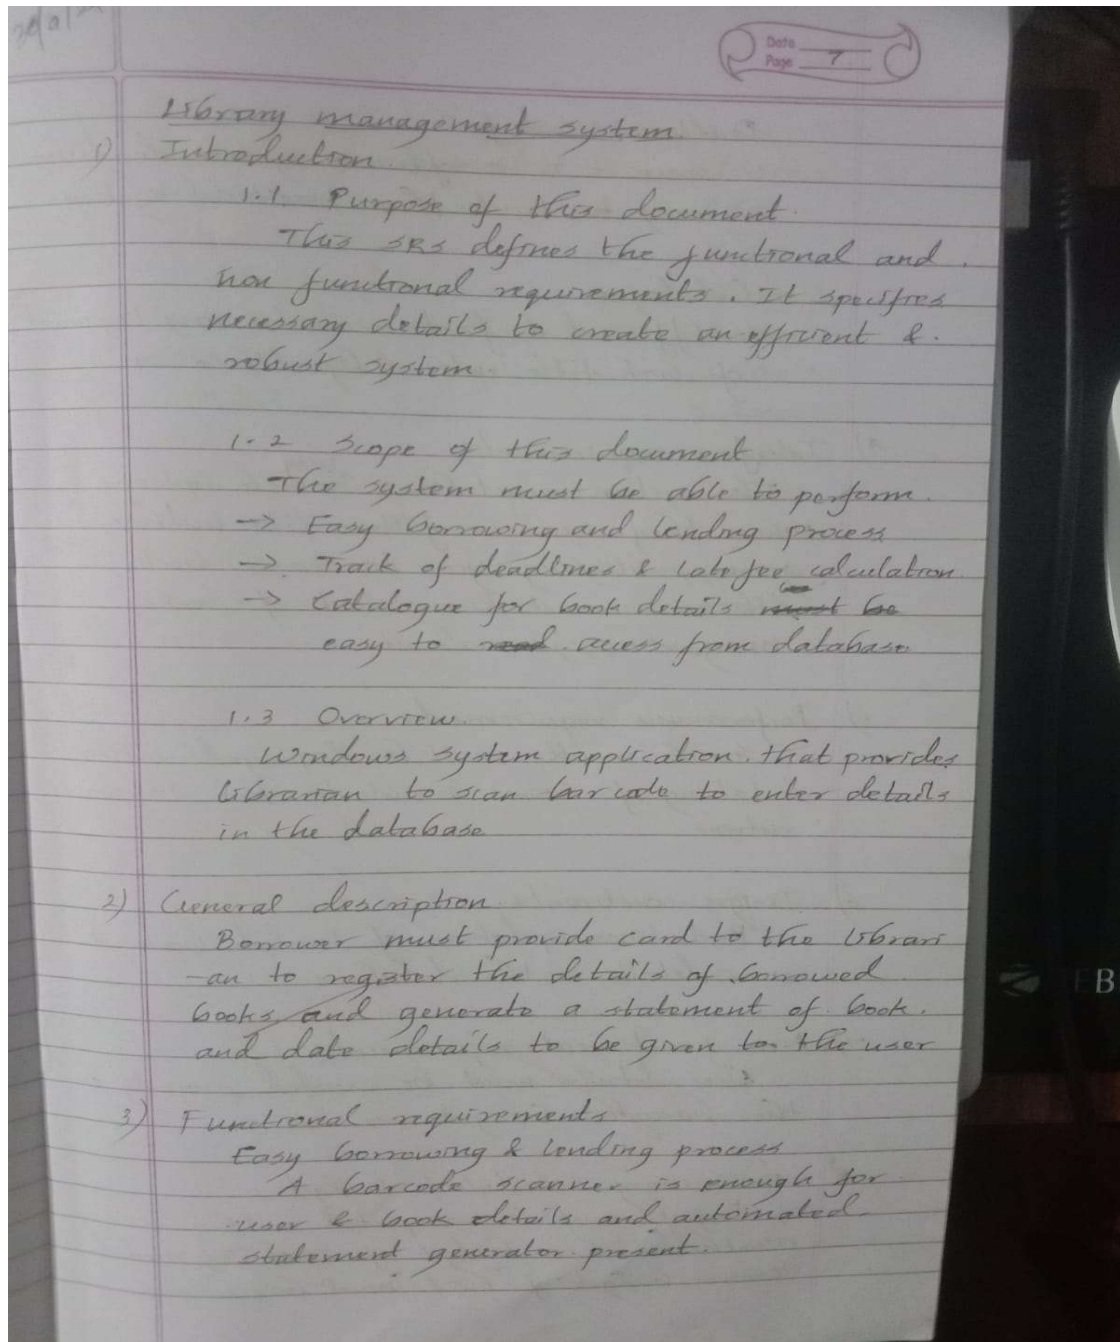 Date
Page 7
Library management system
1) Introduction
1.1 Purpose of this document
This SRS defines the functional and
non functional requirements. It specifies
necessary details to create an efficient &
robust system
1.2 Scope of this document
The system must be able to perform.
-> Easy borrowing and lending process
-> Track of deadlines & late fee calculation
-> Catalogue for book details must be
easy to read access from database
1.3 Overview
Windows system application that provides
librarian to scan bar code to enter details
in the database
2) General description
Borrower must provide card to the librari
-an to register the details of borrowed
books and generate a statement of book
and date details to be given to the user
3) Functional requirements
Easy borrowing & lending process
A barcode scanner is enough for
user & book details and automated
statement generator present.
EB